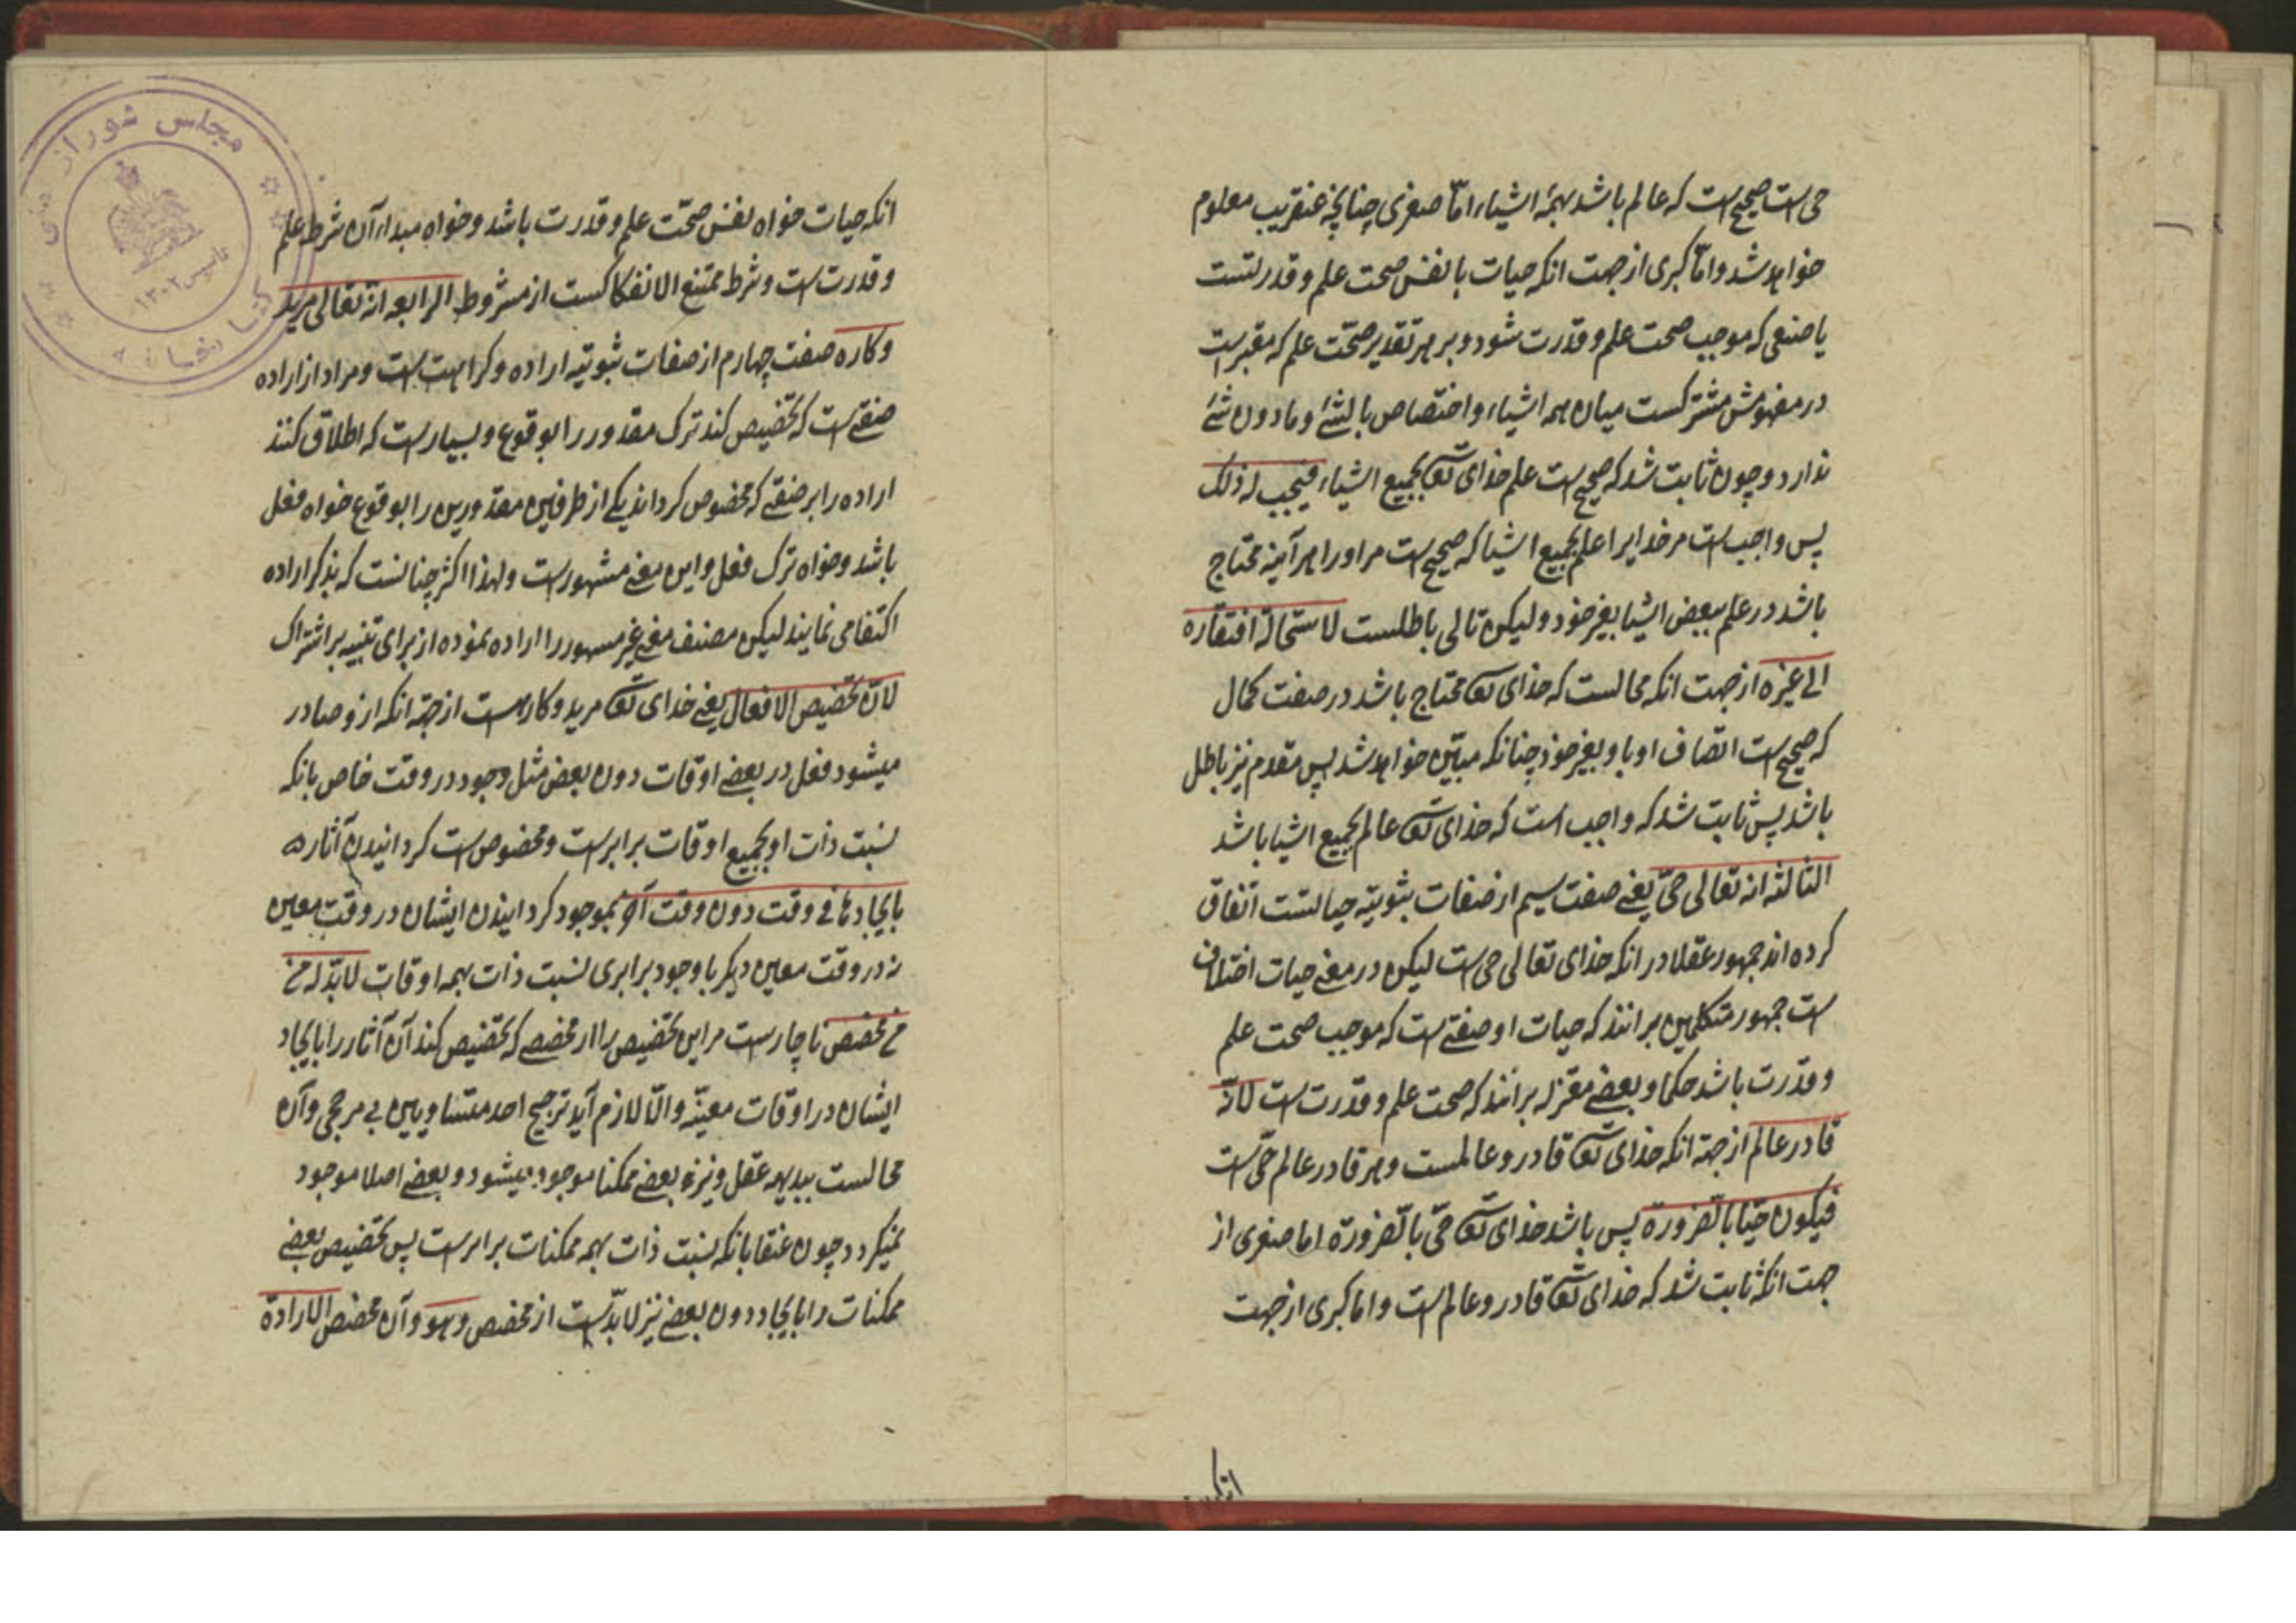 حی است صحیح است که عالم باشد بهمه اشیاء امّا صغری چنانچه عنقریب معلوم
خواهد شد وامّا کبری از جهت انکه حیات با نفس صحت علم و قدرتست
یا صفتی که موجب صحت علم و قدرت شود و بر هر تقدیر صحّت علم که معتبر است
در مفهومش مشترکست میان همه اشیاء و اختصاص بالشئ و مادون شئ
ندارد و چون ثابت شد که صحیح است علم خدای تعا بجمیع اشیاء فیجب له ذلک
پس واجب است مر خدایرا علم بجمیع اشیا که صحیح است مر او را هر آینه محتاج
باشد در علم ببعض اشیا بغیر خود و لیکن تالی باطلست لاستحالة افتقاره
الی غیره از جهت انکه محالست که خدای تعا محتاج باشد در صفت کمال
که صحیح است اتصاف او با و بغیر خود چنانکه مبیّن خواهد شد پس مقدم نیز باطل
باشد پس ثابت شد که واجب است که خدای تعا عالم بجمیع اشیا باشد
الثالثه انه تعالی حیّ یعنی صفت سیم از صفات ثبوتیّه حیاتست اتفاق
کرده اند جمهور عقلا در انکه خدای تعالی حی است لیکن در معنی حیات اختلاف
است جمهور متکلمین برانند که حیات او صفتی است که موجب صحت علم
و قدرت باشد حکما و بعضی معتزله برانند که صحت علم و قدرت است لانّه
قادر عالم از جهة انکه خدای تعا قادر و عالمست و هر قادر عالم حیّ است
فیکون حیّا بالضرورة پس باشد خدای تعا حیّ بالضرورة اما صغری از
جهت انکه ثابت شد که خدای تعا قادر و عالم است و اما کبری از جهت
انکه
انکه حیات خواه نفس صحّت علم و قدرت باشد و خواه مبداء آن شرط علم
و قدرت است و شرط ممتنع الانفکاکست از مشروط الرابعه انه تعالی مرید
و کاره صفت چهارم از صفات ثبوتیه اراده و کراهت است و مراد از اراده
صفتی است که تخصیص کند ترک مقدور را بوقوع و بسیار است که اطلاق کنند
اراده را بر صفتی که مخصوص کرداند یکی از طرفین مقدورین را بوقوع خواه فعل
باشد و خواه ترک فعل و این معنی مشهور است و لهذا اکثر چنانست که بذکر اراده
اکتفا می نمایند لیکن مصنف معنی غیر مسهور را اراده نموده از برای تنبیه بر اشتراک
لانّ تخصیص الافعال یعنی خدای تعا مرید و کاره است از جهة انکه از و صادر
میشود فعل در بعضی اوقات دون بعض مثل وجود در وقت خاص بانکه
نسبت ذات او بجمیع اوقات برابر است و مخصوص است کردانیدن آثاره
بایجادها فی وقت دون وقت آخر بموجود کردانیدن ایشان در وقت معین
نه در وقت معین دیکر با وجود برابری نسبت ذات بهمه اوقات لابدّ له من
من مخصص ناچار است مر این تخصیص را از مخصصی که تخصیص کند آن آثار را بایجاد
ایشان در اوقات معینّه والّا لازم آید ترجیح احد متساویین بی مرجحی و آن
محالست ببدیهه عقل و نیز بعضی ممکنا موجود میشود و بعضی اصلا موجود
نمیکردد چون عنقا بانکه نسبت ذات بهمه ممکنات برابر است پس تخصیص بعضی
ممکنات را بایجاد دون بعضی نیز لابدّ است از مخصص وهو و آن مخصص الارادة
مجلس شورای ملی
کتابخانه
۱۳۰۲